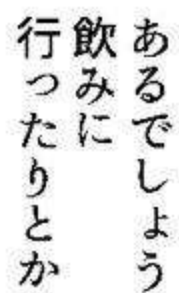 あるでしょう
飲みに
行ったりとか